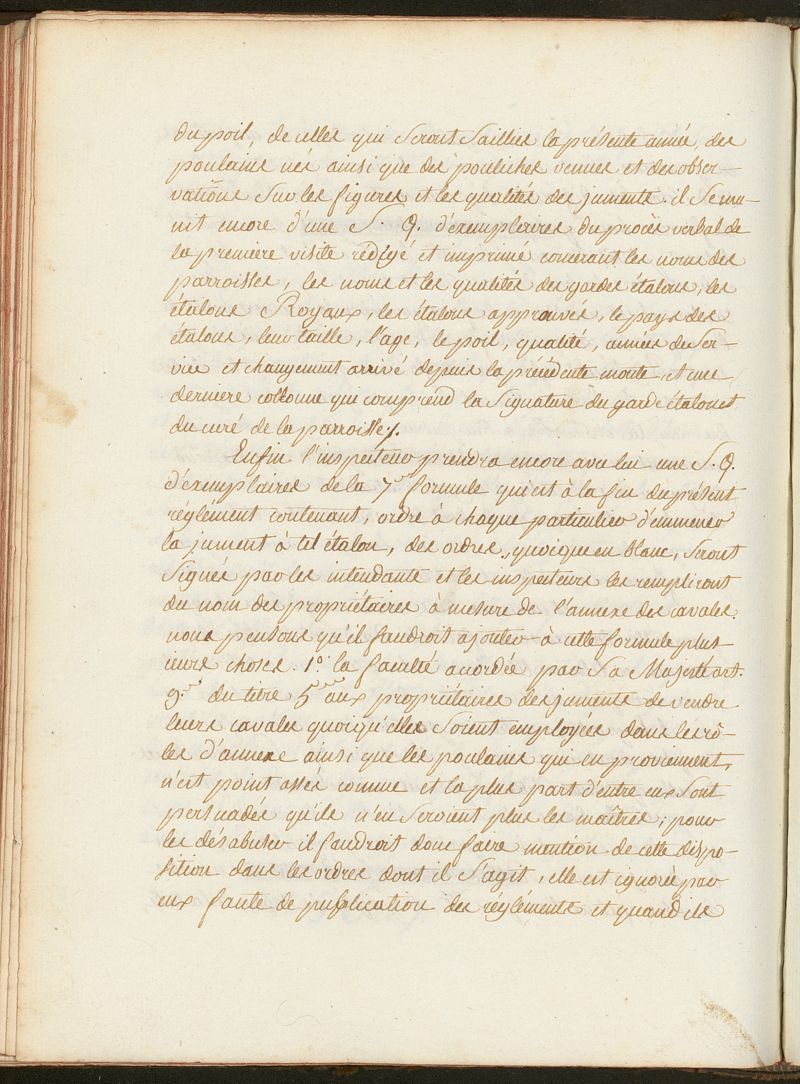 du poil, de celles qui seront saillies la présente année, des
poulains nés ainsi que des pouliches venues et des obser-
vations sur les figures et les qualités des juments. il se mu-
nit encore d'une S. Q. d'exemplaires du procès verbal de
la premiere visite rédigé et imprimé concernant les noms des
parroisses, les noms et les qualités des gardes étalons, les
étalons Royaux, les étalons approuvés, le pays des
étalons, leur taille, l'age, le poil, qualité, années de ser-
vice et changement arrivé depuis la précédente monte, et une
derniere collonne qui comprend la signature du garde étalon et
du curé de la parroisse/.
Enfin l'inspecteur prendra encore avec lui une S. Q.
d'exemplaires de la 7e formule qui est à la fin du présent
réglement contenant, ordre à chaque particulier d'emmener
la jument à tel étalon, des ordres, quoique en blanc, seront
signés par les intendants et les inspecteurs les rempliront
du nom des propriétaires à mesure de l'annexe des cavales.
nous pensons qu'il faudroit ajouter à cette formule plus-
ieurs choses. 1o. la faculté accordée par Sa Majesté art.
9e du titre 5e aux propriétaires des juments de vendre
leurs cavales quoiqu'elles soient employées dans les rô-
les d'annexe ainsi que les poulains qui en proviennent,
n'est point assés connue et la plus part d'entre eux sont
persuadés qu'ils n'en seroient plus les maîtres; pour
les désabuser il faudroit donc faire mention de cette dispo-
sition dans les ordres dont il s'agit, elle est ignorée par
eux faute de publication des réglements et quand ils